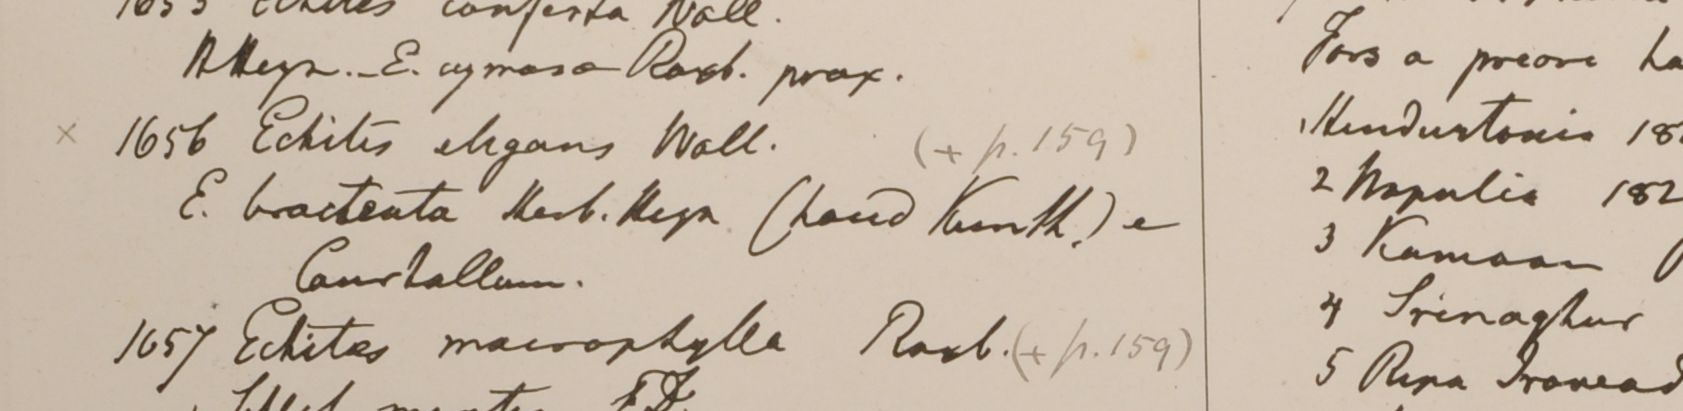 1655 Echites conferta Wall.
H Heyn. - E. cymosa Roxb. prox.
× 1656 Echites elegans Wall. (+ p. 159)
E. bracteata Herb. Heyn (haud Kunth.) e
Courtallum.
1657 Echites macrophylla Roxb. (+ p. 159)
montes
Fors a priore ha
1 Hindustania 18
2 Napalia 182
3 Kamaon
4 Srinaghur
5 Ripa